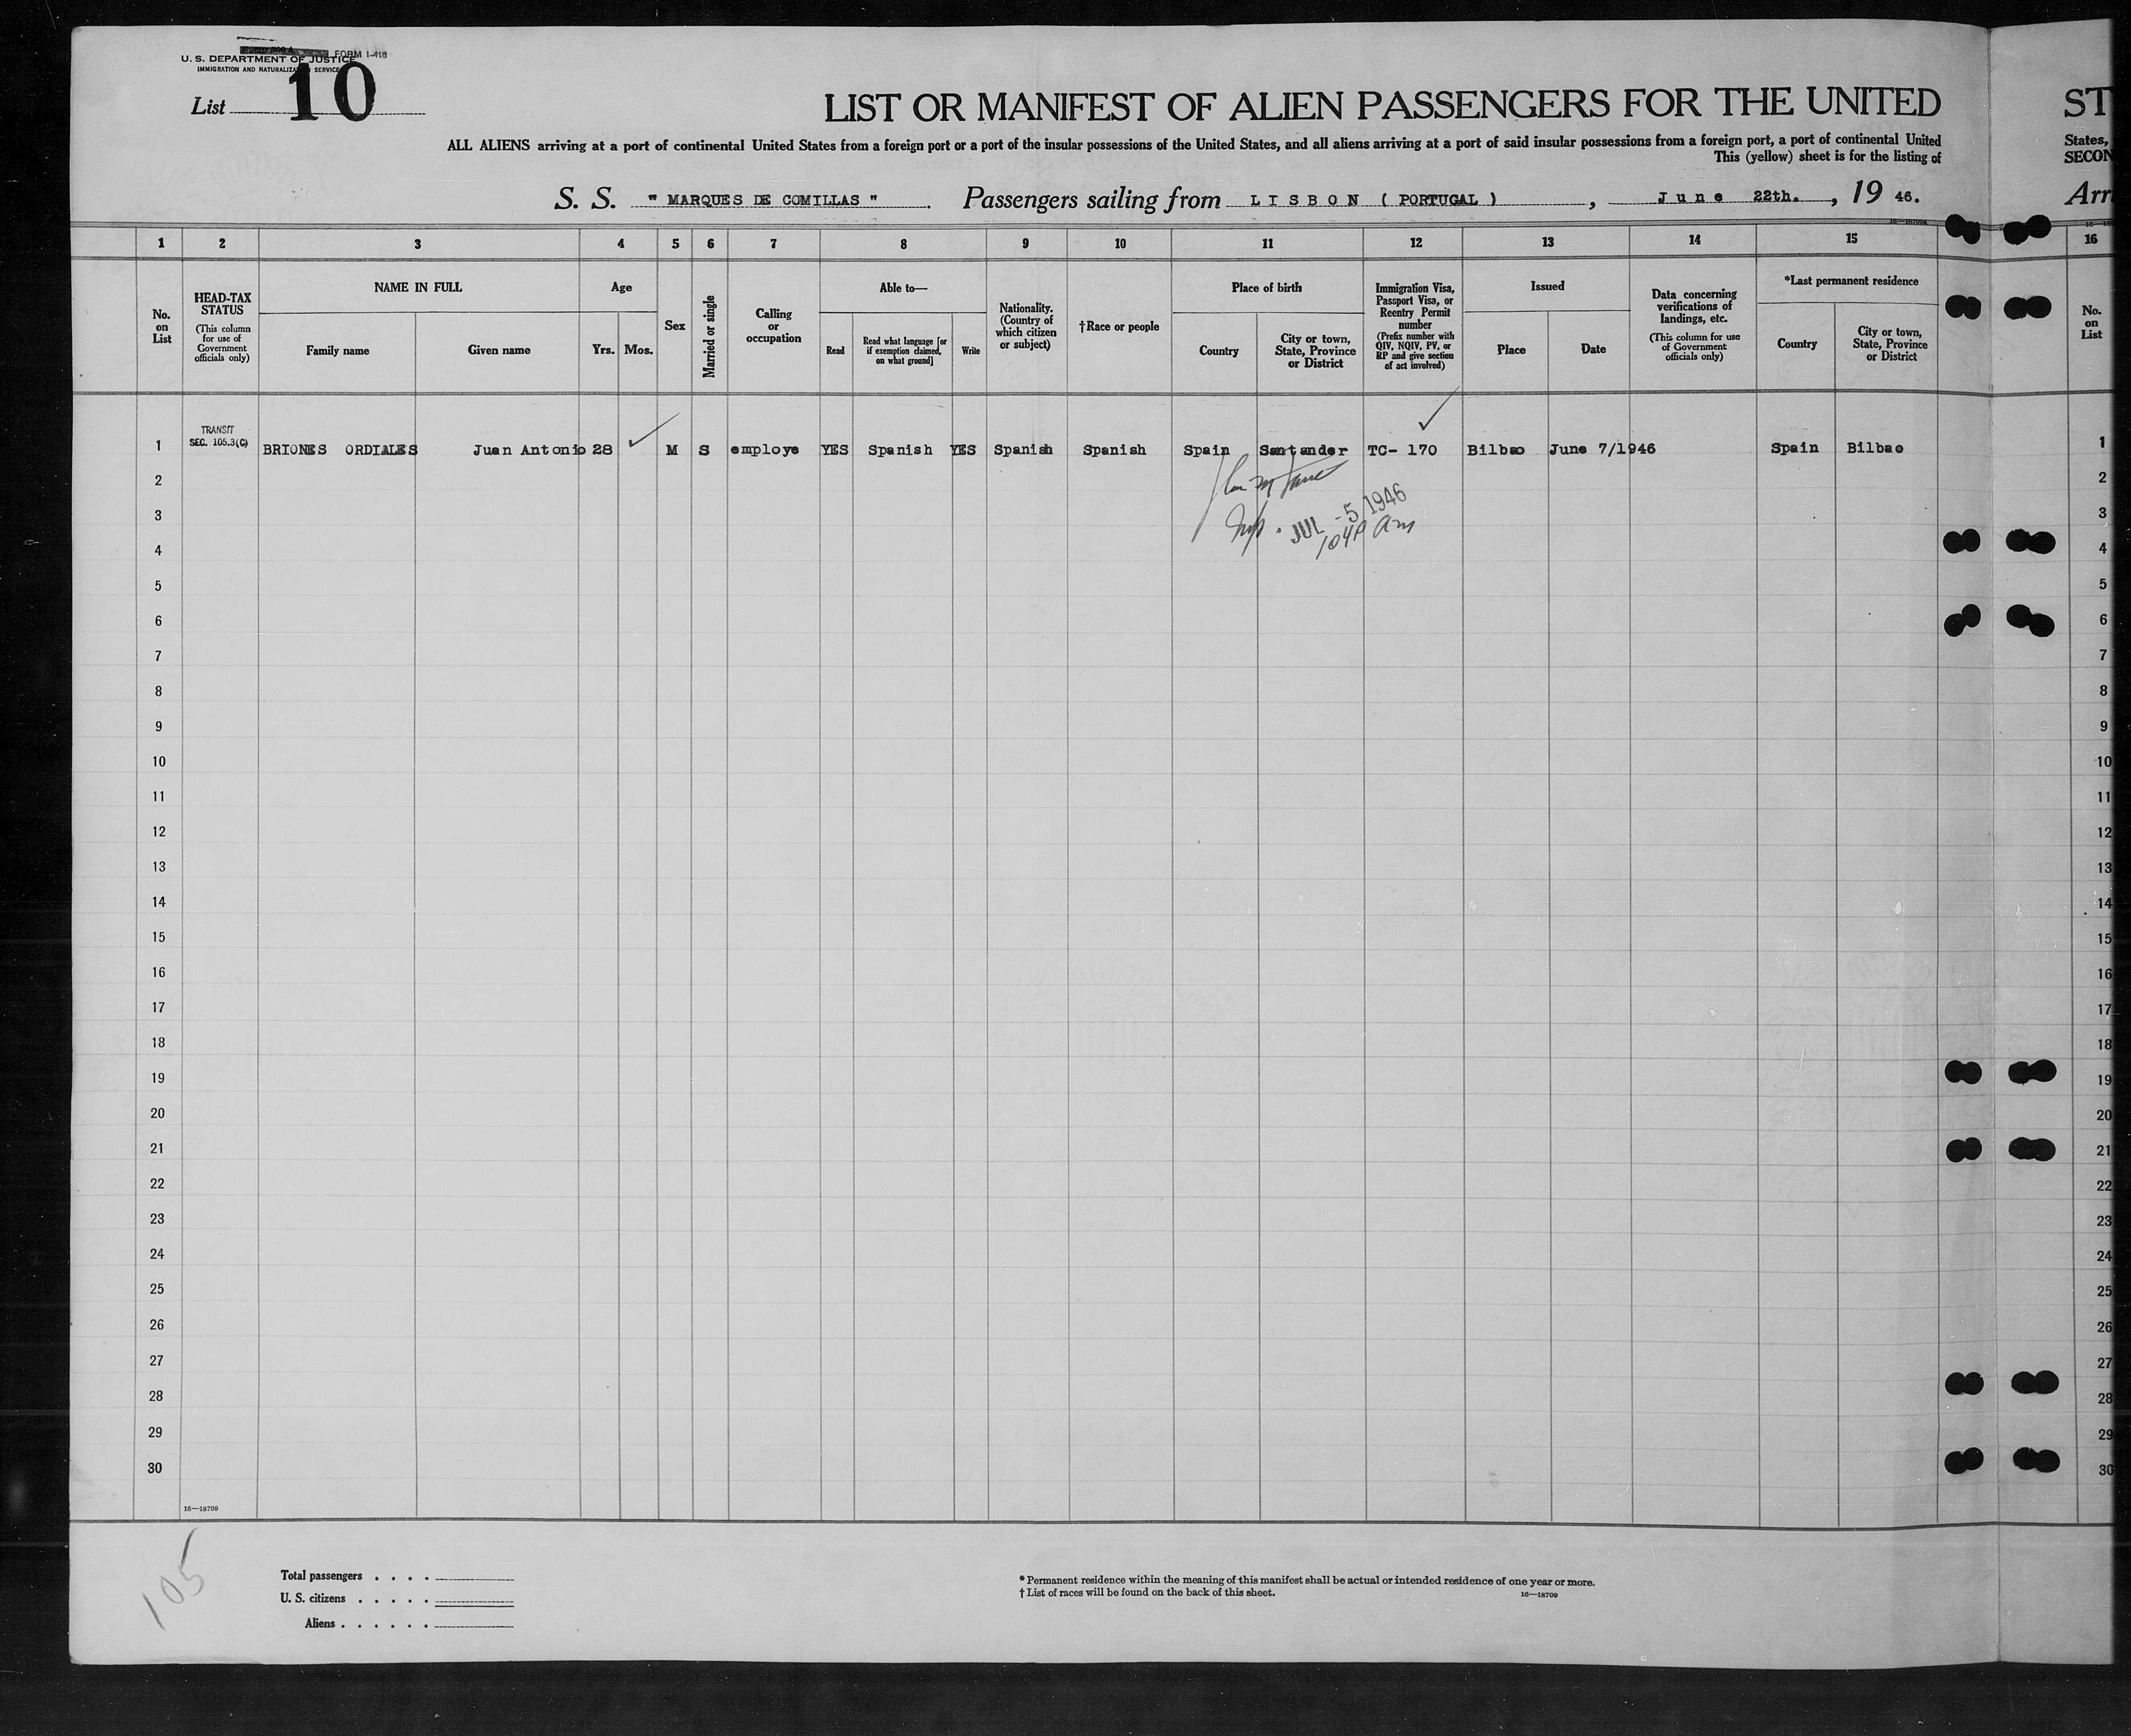 FORM I-418
U. S. DEPARTMENT OF JUSTICE
IMMIGRATION AND NATURALIZATION SERVICE
List 10
LIST OR MANIFEST OF ALIEN PASSENGERS FOR THE UNITED ST
ALL ALIENS arriving at a port of continental United States from a foreign port or a port of the insular possessions of the United States, and all aliens arriving at a port of said insular possessions from a foreign port, a port of continental United States,
This (yellow) sheet is for the listing of SECON
S. S. " MARQUES DE COMILLAS ". Passengers sailing from L I S B O N ( PORTUGAL ) , J u n e 22th. , 19 46. Arr
1 2 3 4 5 6 7 8 9 10 11 12 13 14 15 16
No. on List
HEAD-TAX STATUS
(This column for use of Government officials only)
NAME IN FULL
Family name
Given name
Age
Yrs.
Mos.
Sex
Married or single
Calling or occupation
Able to—
Read
Read what language [or if exemption claimed, on what ground]
Write
Nationality. (Country of which citizen or subject)
†Race or people
Place of birth
Country
City or town, State, Province or District
Immigration Visa, Passport Visa, or Reentry Permit number
(Prefix number with QIV, NQIV, PV, or RP and give section of act involved)
Issued
Place
Date
Data concerning verifications of landings, etc.
(This column for use of Government officials only)
*Last permanent residence
Country
City or town, State, Province or District
No. on List
TRANSIT
SEC. 105.3(C)
1 BRIONES ORDIALES Juan Antonio 28 M S employe YES Spanish YES Spanish Spanish Spain Santander TC- 170 Bilbao June 7/1946 Spain Bilbao 1
2 2
3 JUL -5 1946 3
4 4
5 5
6 6
7 7
8 8
9 9
10 10
11 11
12 12
13 13
14 14
15 15
16 16
17 17
18 18
19 19
20 20
21 21
22 22
23 23
24 24
25 25
26 26
27 27
28 28
29 29
30 30
16—18709
105
Total passengers . . . .
U. S. citizens . . . . .
Aliens . . . . . .
* Permanent residence within the meaning of this manifest shall be actual or intended residence of one year or more.
† List of races will be found on the back of this sheet. 16—18709